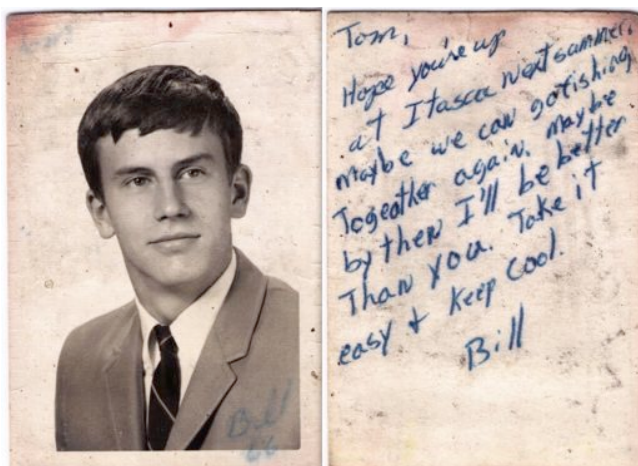 Bill
66
Tom,
Hope you're up
at Itasca next summer.
maybe we can go fishing
Togeather again. maybe
by then I'll be better
Than you. Take it
easy + keep cool.
Bill